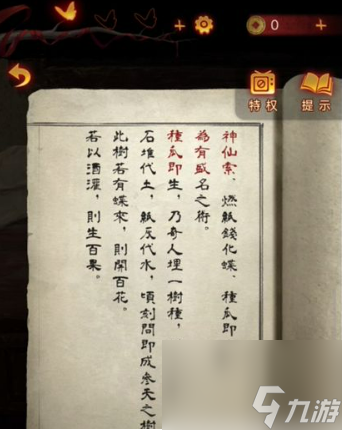 0
特权
提示
神仙索、燃紙錢化蝶、種瓜即
為有盛名之術。
種瓜即生,乃奇人埋一樹種,
石堆代土,紙灰代水,頃刻間即成參天之樹
此樹若有蝶來,則開百花。
若以酒灌,則生百果。
九游